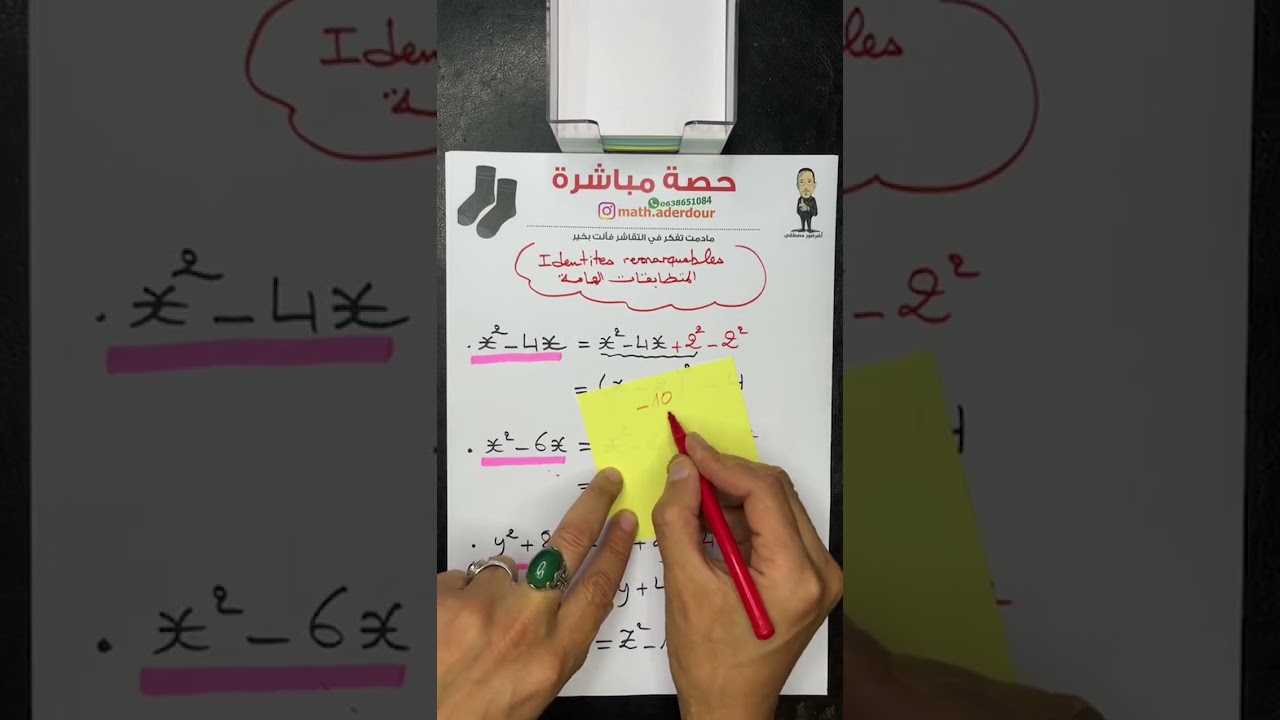 حصة مباشرة
0638651084
math.aderdour
أضرضور مصطفى
مادمت تفكر في التقاشر فأنت بخير
Identites remarquables
المتطابقات الهامة
. x² - 4x = x² - 4x + 2² - 2²
= (x
-10
. x² - 6x = x²
=
. y² + 8
y + 4
= z² -